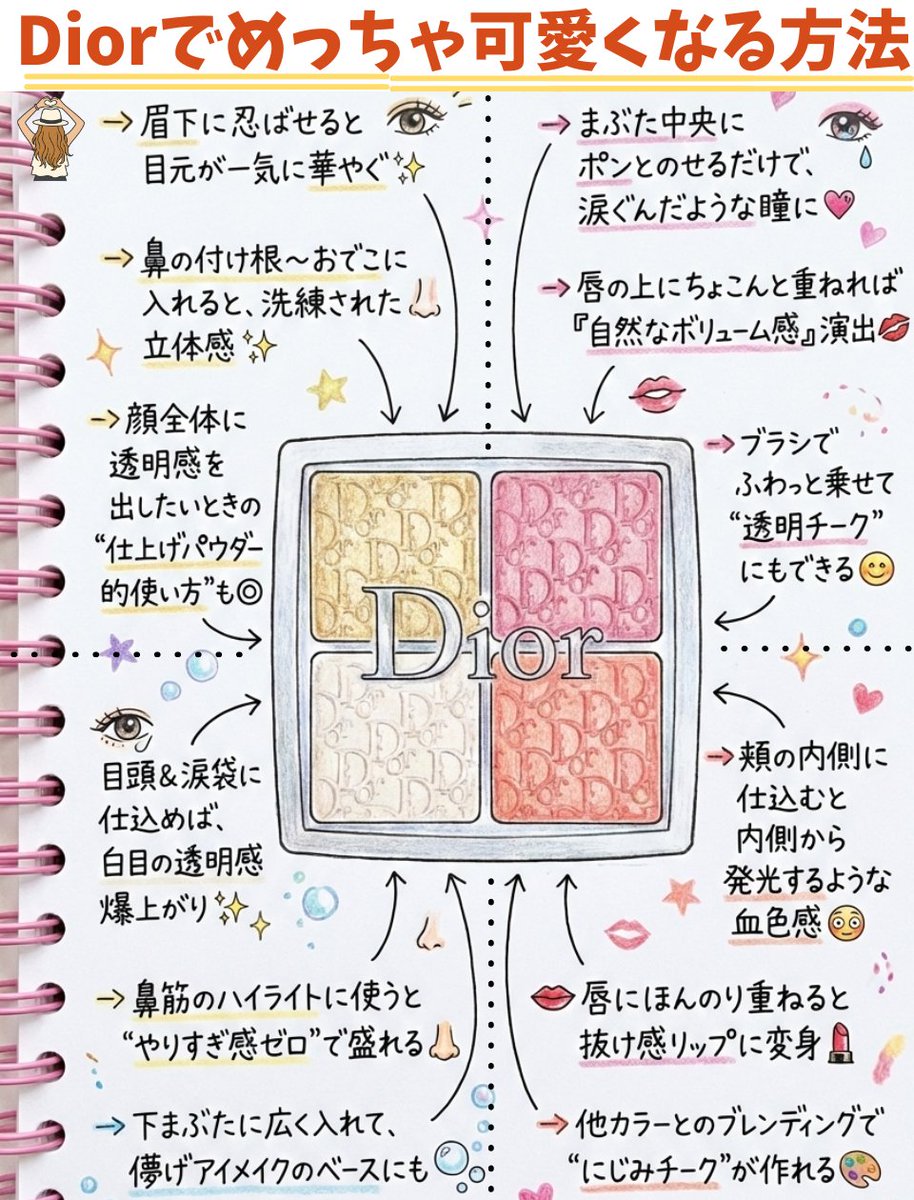 Diorでめっちゃ可愛くなる方法
→眉下に忍ばせると
目元が一気に華やぐ
→鼻の付け根～おでこに
入れると、洗練された
立体感
→顔全体に
透明感を
出したいときの
“仕上げパウダー
的使い方”も◎
→まぶた中央に
ポンとのせるだけで、
涙ぐんだような瞳に
→唇の上にちょこんと重ねれば
『自然なボリューム感』演出
→ブラシで
ふわっと乗せて
“透明チーク”
にもできる
Dior
目頭&涙袋に
仕込めば、
白目の透明感
爆上がり
→鼻筋のハイライトに使うと
“やりすぎ感ゼロ”で盛れる
→下まぶたに広く入れて、
儚げアイメイクのベースにも
→頬の内側に
仕込むと
内側から
発光するような
血色感
唇にほんのり重ねると
抜け感リップに変身
→他カラーとのブレンディングで
“にじみチーク”が作れる